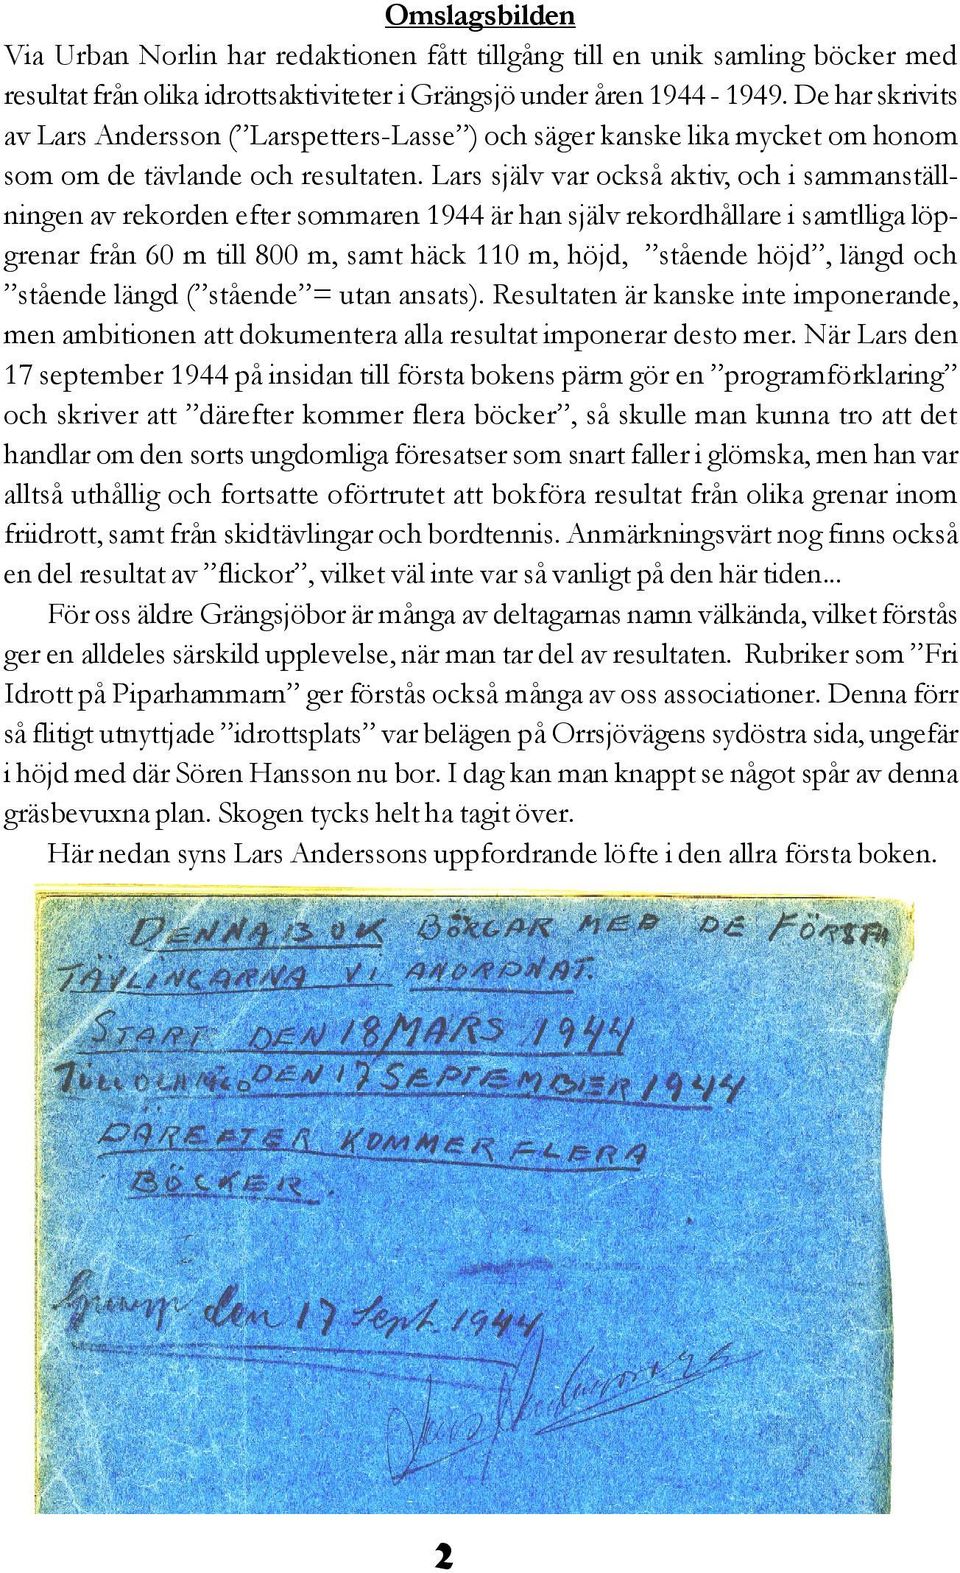 Omslagsbilden
Via Urban Norlin har redaktionen fått tillgång till en unik samling böcker med
resultat från olika idrottsaktiviteter i Grängsjö under åren 1944 - 1949. De har skrivits
av Lars Andersson (”Larspetters-Lasse”) och säger kanske lika mycket om honom
som om de tävlande och resultaten. Lars själv var också aktiv, och i sammanställ-
ningen av rekorden efter sommaren 1944 är han själv rekordhållare i samtlliga löp-
grenar från 60 m till 800 m, samt häck 110 m, höjd, ”stående höjd”, längd och
”stående längd (”stående”= utan ansats). Resultaten är kanske inte imponerande,
men ambitionen att dokumentera alla resultat imponerar desto mer. När Lars den
17 september 1944 på insidan till första bokens pärm gör en ”programförklaring”
och skriver att ”därefter kommer flera böcker”, så skulle man kunna tro att det
handlar om den sorts ungdomliga föresatser som snart faller i glömska, men han var
alltså uthållig och fortsatte oförtrutet att bokföra resultat från olika grenar inom
friidrott, samt från skidtävlingar och bordtennis. Anmärkningsvärt nog finns också
en del resultat av ”flickor”, vilket väl inte var så vanligt på den här tiden...
För oss äldre Grängsjöbor är många av deltagarnas namn välkända, vilket förstås
ger en alldeles särskild upplevelse, när man tar del av resultaten. Rubriker som ”Fri
Idrott på Piparhammarn” ger förstås också många av oss associationer. Denna förr
så flitigt utnyttjade ”idrottsplats” var belägen på Orrsjövägens sydöstra sida, ungefär
i höjd med där Sören Hansson nu bor. I dag kan man knappt se något spår av denna
gräsbevuxna plan. Skogen tycks helt ha tagit över.
Här nedan syns Lars Anderssons uppfordrande löfte i den allra första boken.
DENNA BOK BÖRGAR MED DE FÖRSTA
TÄVLINGARNA VI ANORDNAT.
START DEN 18 MARS 1944
TILL OCH MED DEN 17 SEPTEMBER 1944
DÄREFTER KOMMER FLERA
BÖCKER.
den 17 Sept. 1944
2